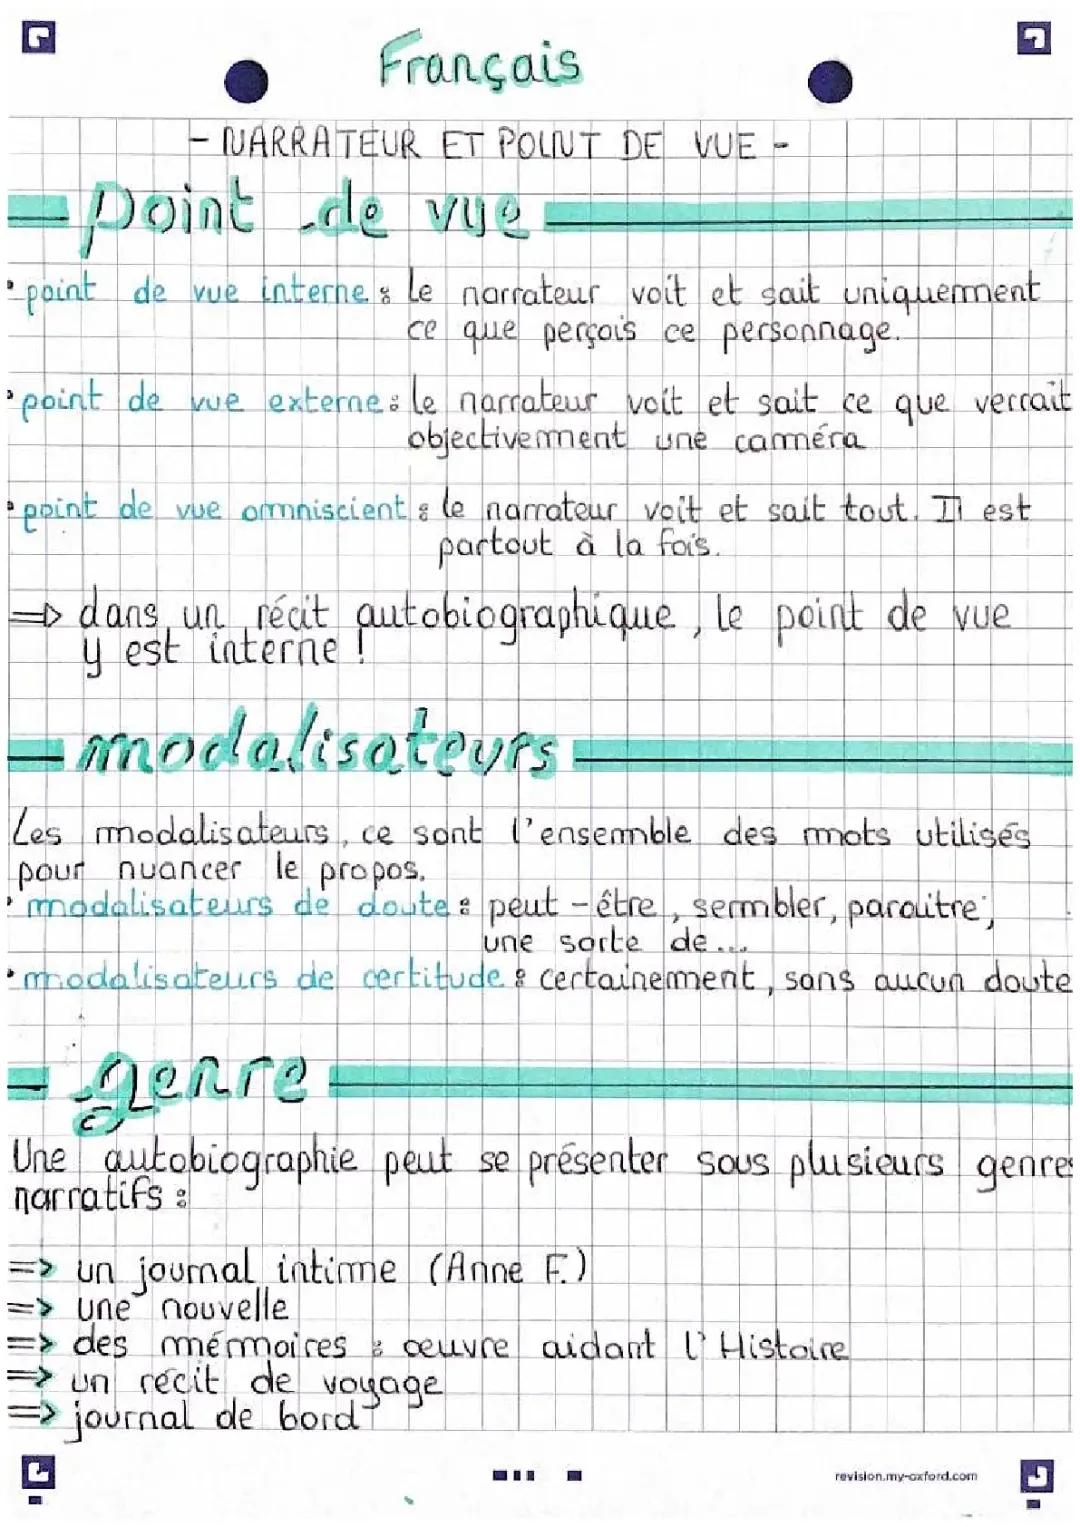 Français
- NARRATEUR ET POINT DE VUE -
point de vue
• point de vue interne : Le narrateur voit et sait uniquement
ce que perçois ce personnage.
• point de vue externe : le narrateur voit et sait ce que verrait
objectivement une caméra
• point de vue omniscient : le narrateur voit et sait tout. Il est
partout à la fois.
=> dans un récit autobiographique, le point de vue
y est interne !
modalisateurs
Les modalisateurs, ce sont l'ensemble des mots utilisés
pour nuancer le propos.
• modalisateurs de doute : peut-être, sembler, paraître,
une sorte de...
• modalisateurs de certitude : certainement, sans aucun doute
genre
Une autobiographie peut se présenter sous plusieurs genres
narratifs :
=> un journal intime (Anne F.)
=> une nouvelle
=> des mémoires : œuvre aidant l'Histoire
=> un récit de voyage
=> journal de bord
revision.my-oxford.com